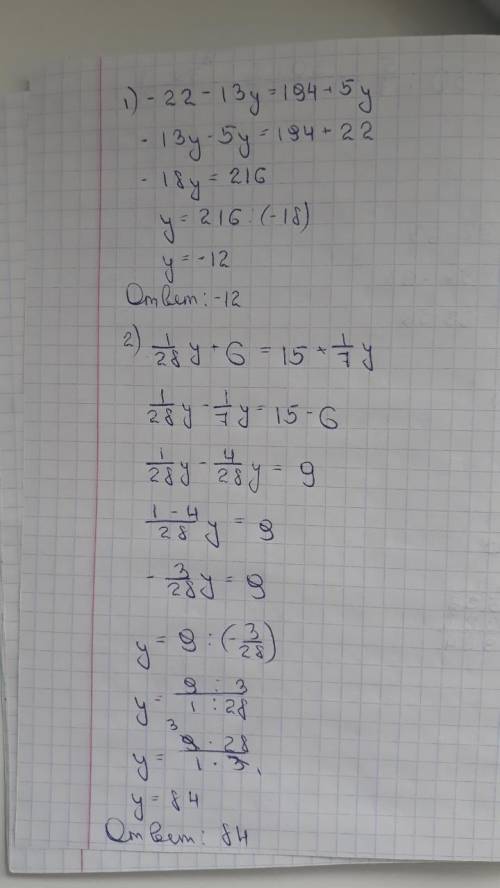 1) -22 - 13y = 194 + 5y
-13y - 5y = 194 + 22
-18y = 216
y = 216 : (-18)
y = -12
Ответ: -12
2) 1/28 y + 6 = 15 + 1/7 y
1/28 y - 1/7 y = 15 - 6
1/28 y - 4/28 y = 9
(1 - 4)/28 y = 9
-3/28 y = 9
y = 9 : (-3/28)
y = 9 : 3 / 1 : 28
y = 3 9 · 28 / 1 · 3 1
y = 84
Ответ: 84